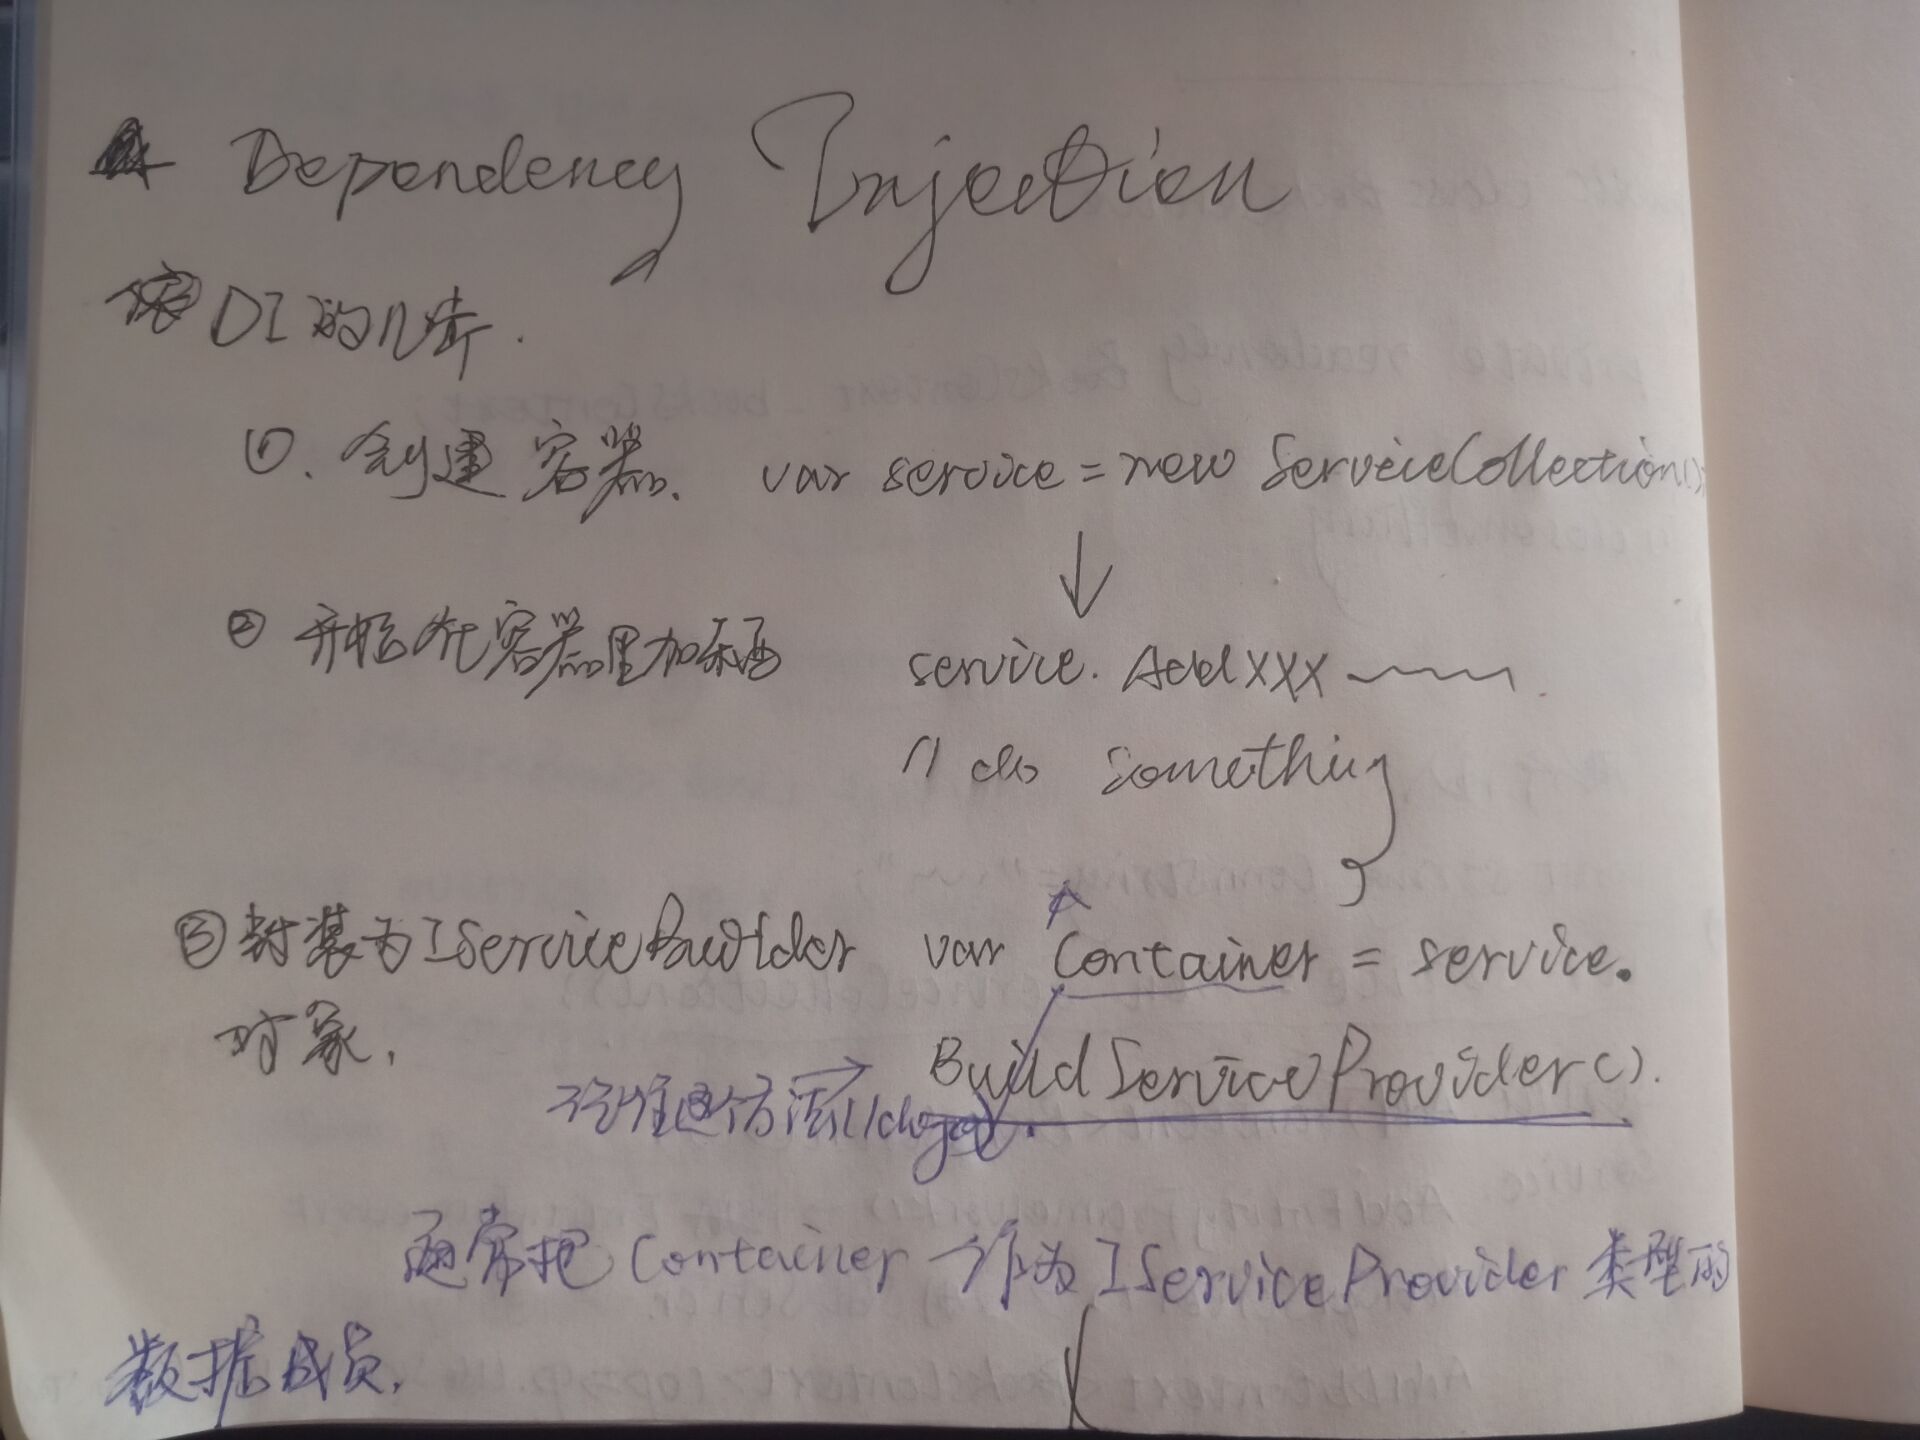 Dependency Injection
DI的几步.
①. 创建容器. var service = new ServiceCollection();
② 开始往容器里加东西 service. AddXXX
// do something
③ 封装为IServiceBuilder var Container = service.
对象. BuildServiceProvider().
这个方法
通常把 Container 作为 IServiceProvider 类型的
数据成员.